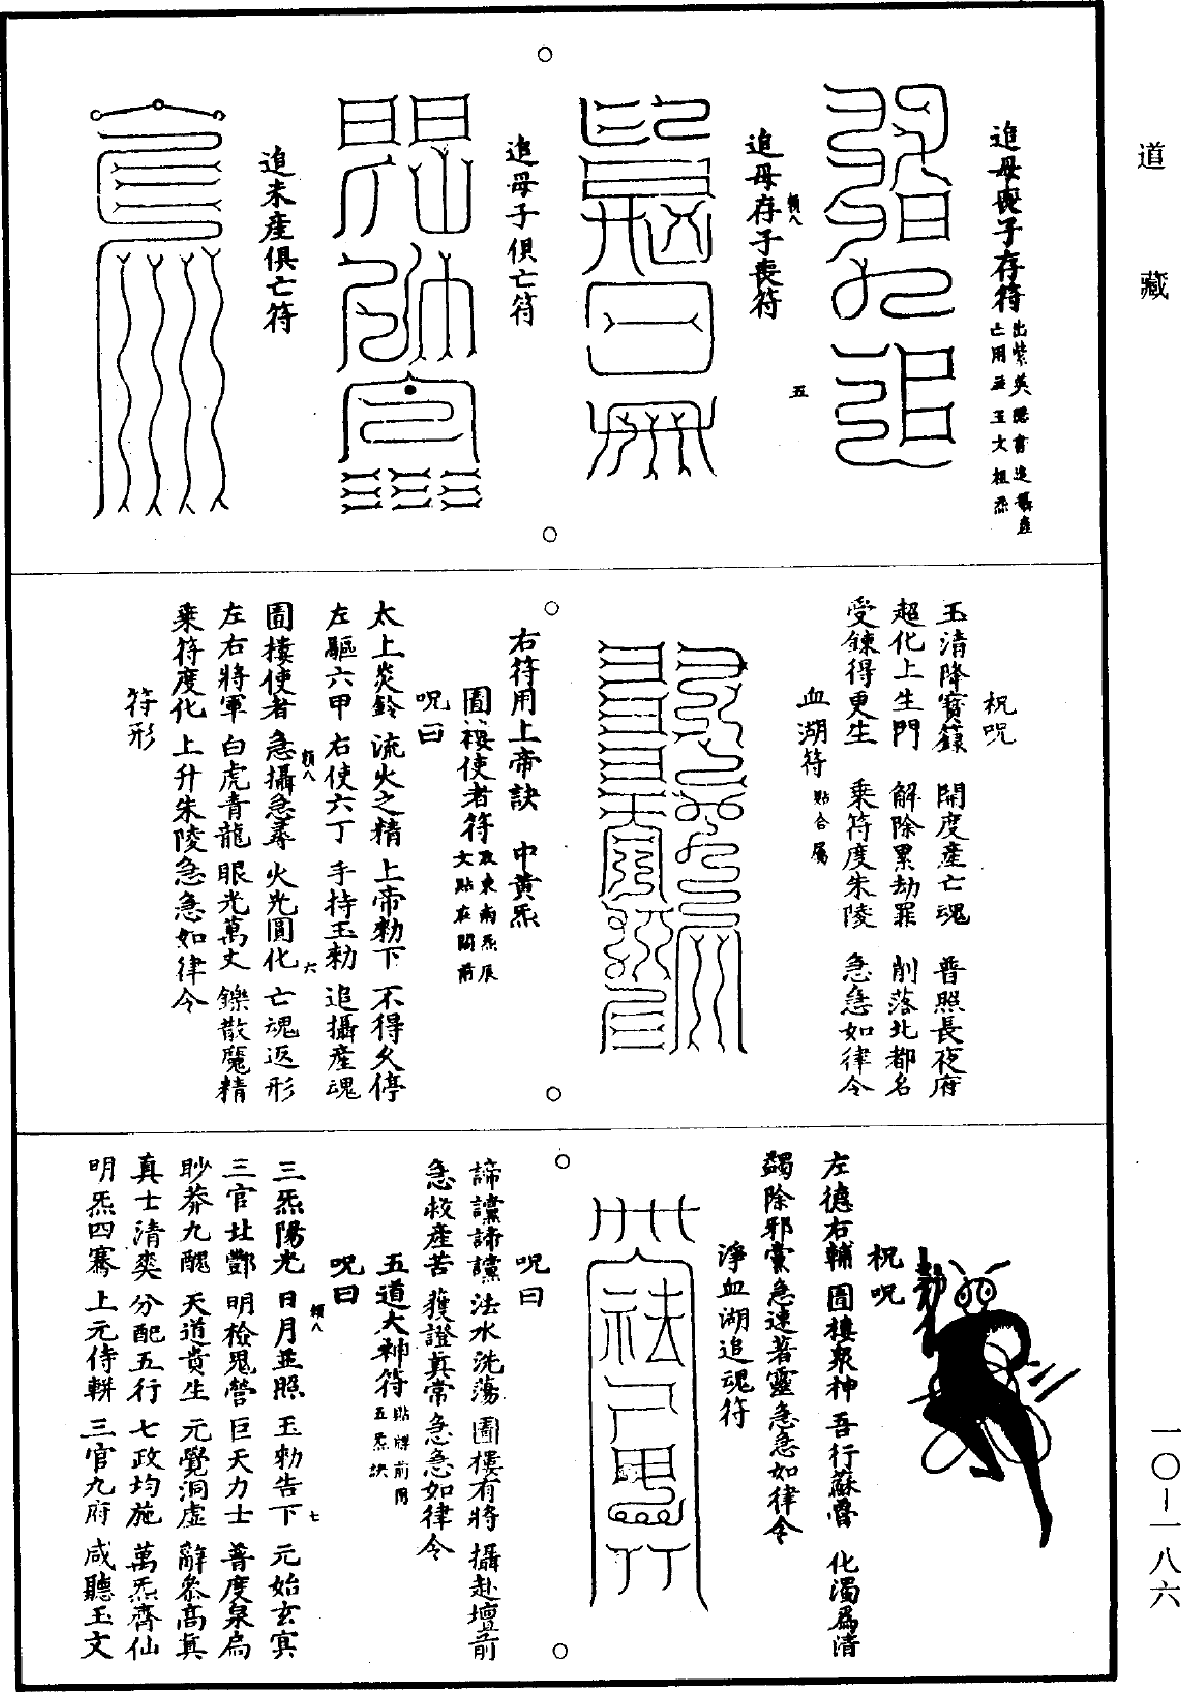 道藏
追母喪子存符
追母存子喪符
追母子俱亡符
追未產俱亡符
祝呪
玉清降寶籙 開度產亡魂 普照長夜府
超化上生門 解除累劫罪 削落北都名
受鍊得更生 乘符度朱陵 急急如律令
血湖符
右符用上帝訣 中黃炁
呪曰
太上炎鈴 流火之精 上帝勑下 不得久停
左驅六甲 右使六丁 手持玉勑 追攝產魂
圊樓使者 急攝急尋 火光圓化 亡魂返形
左右將軍 白虎青龍 眼光萬丈 鑠散魔精
乘符度化 上升朱陵 急急如律令
符形
祝呪
左德右輔 圊樓衆神 吾行蘇㽮 化濁爲清
蠲除邪穢 急速著靈 急急如律令
淨血湖追魂符
呪曰
法水洗蕩 圊樓有將 攝赴壇前
急救產苦 獲證真常 急急如律令
五道大神符
呪曰
三炁陽光 日月並照 玉勑告下 元始玄冥
三官北酆 明檢鬼營 巨天力士 普度泉扃
眇莽九醜 天道貴生 元覺洞虛 辭參高真
真士清爽 分配五行 七政均施 萬炁齊仙
明炁四騫 上元侍軿 三官九府 咸聽玉文
一〇-一八六